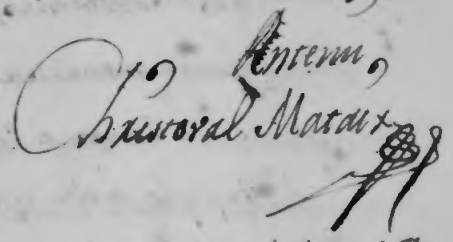 Antemi,
Christoval Mataix